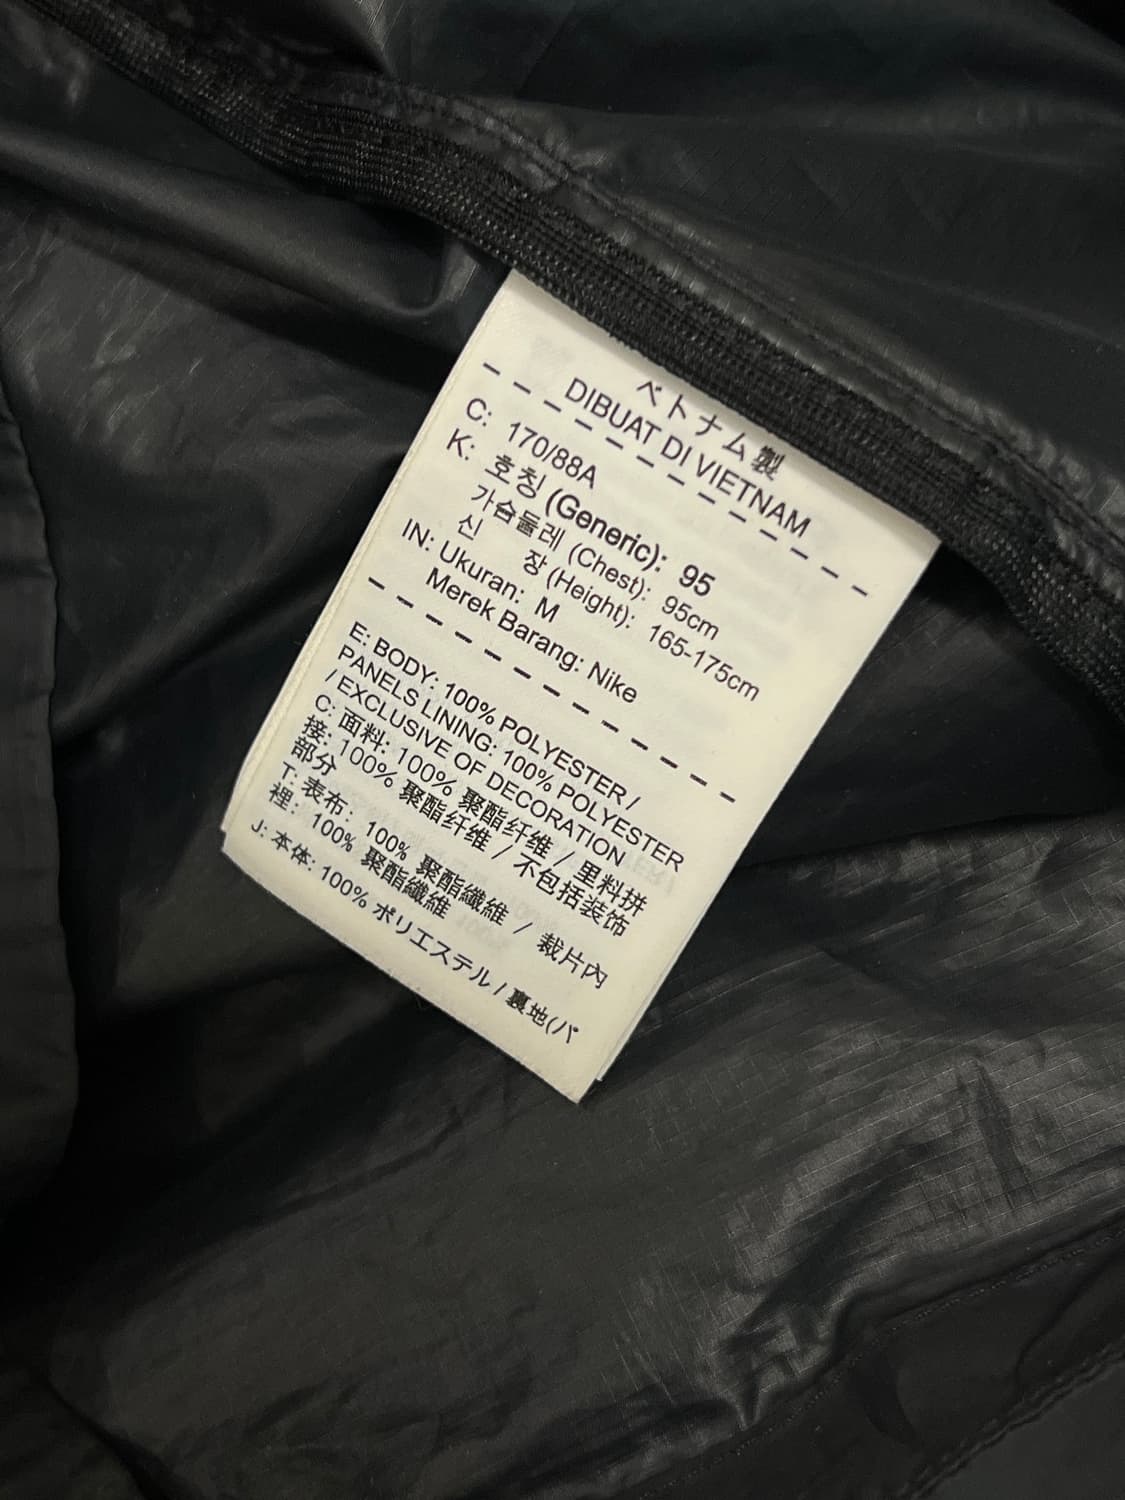 ベトナム製
DIBUAT DI VIETNAM
C: 170/88A
K: 호칭 (Generic): 95
가슴둘레 (Chest): 95cm
신 장 (Height): 165-175cm
IN: Ukuran: M
Merek Barang: Nike
E: BODY: 100% POLYESTER /
PANELS LINING: 100% POLYESTER
/ EXCLUSIVE OF DECORATION
C: 面料: 100% 聚酯纤维 / 里料拼
接: 100% 聚酯纤维 / 不包括装饰
部分
T: 表布: 100% 聚酯纖維 / 裁片內
裡: 100% 聚酯纖維
J: 本体: 100% ポリエステル / 裏地(パ